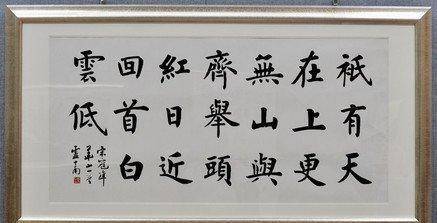 祇有天
在上更
無山與
齊舉頭
紅日近
回首白
雲低
宋寇準
華山